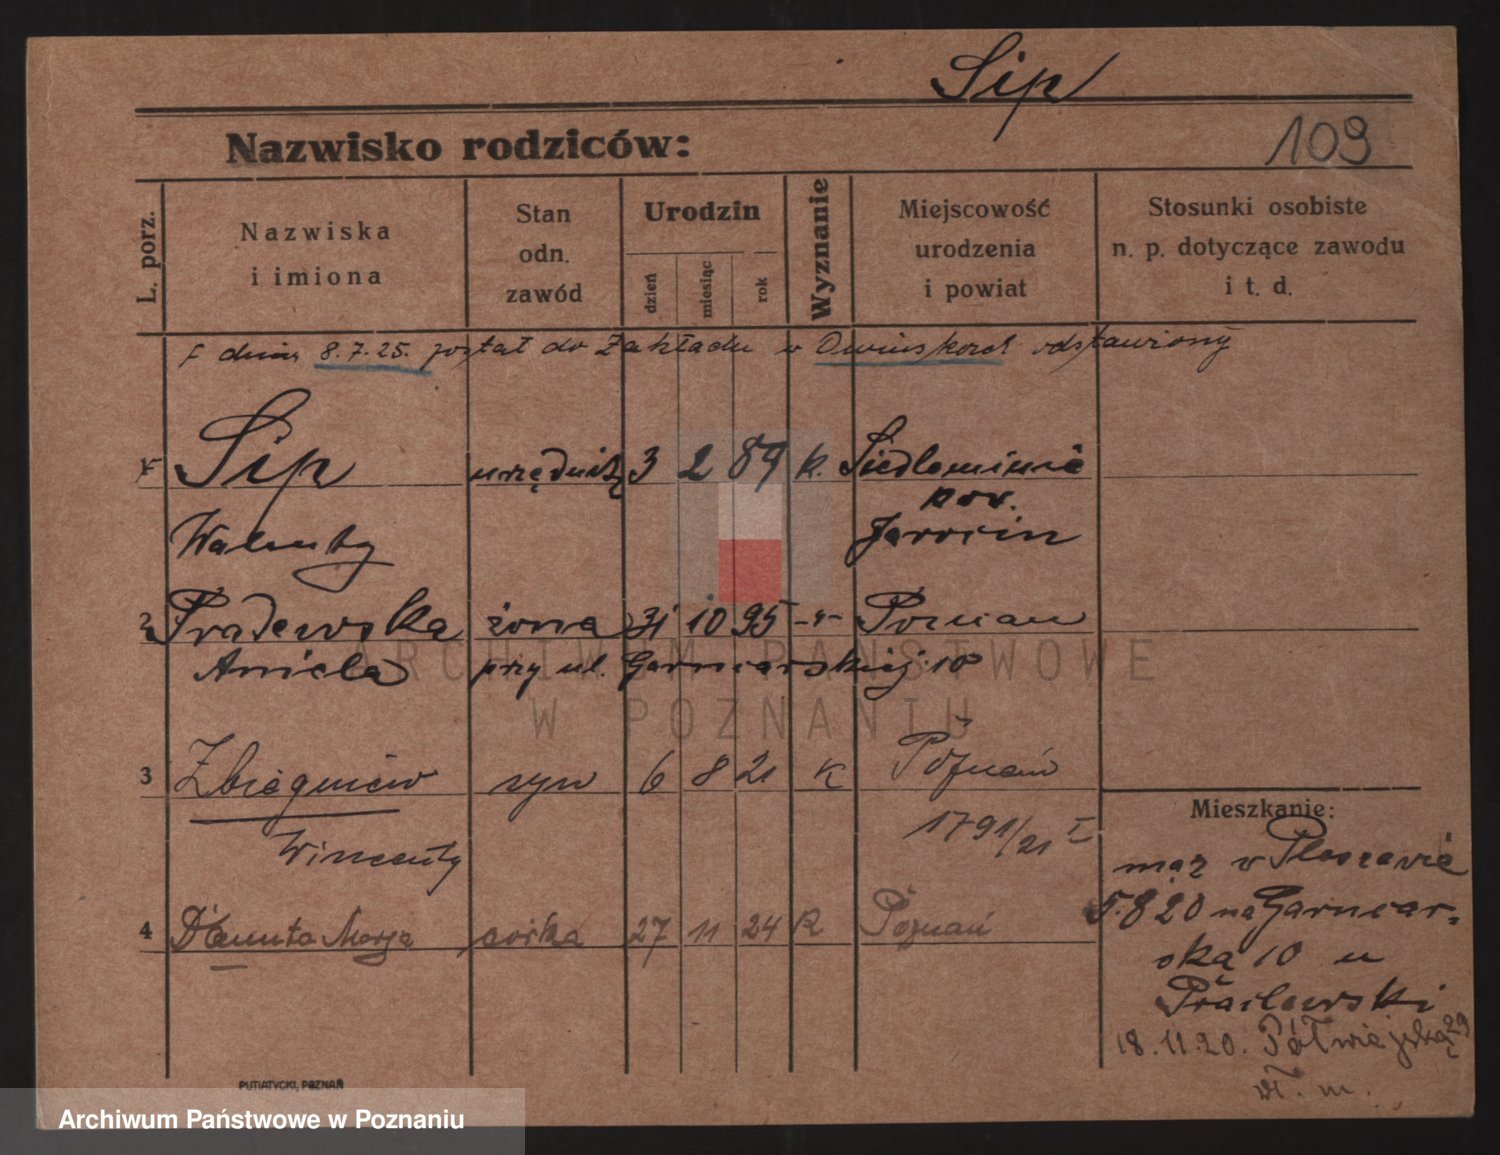 Sip
Nazwisko rodziców:
109
L. porz.
Nazwiska
i imiona
Stan
odn.
zawód
Urodzin
dzień
miesiąc
rok
Wyznanie
Miejscowość
urodzenia
i powiat
Stosunki osobiste
n. p. dotyczące zawodu
i t. d.
dnia 8.7.25. został do Zakładu w Owińskach odstawiony
1 Sip urzędnik 3 2 89 k. Siedlemin
pow.
Walenty Jarocin
2 żona 31 10 95 -"- Poznań
Aniela przy ul. Garncarskiej 10
3 Zbiegniew syn 6 8 21 K Poznań
1791/21 I
Wincenty
4 Danuta Marja córka 27 11 24 K Poznań
Mieszkanie:
mąż w
5.8 20 na Garncar-
ską 10 u
18.11.20. Półwiejska 29
wł. m.
PUTIATYCKI, POZNAŃ
ARCHIWUM PAŃSTWOWE
W POZNANIU
Archiwum Państwowe w Poznaniu